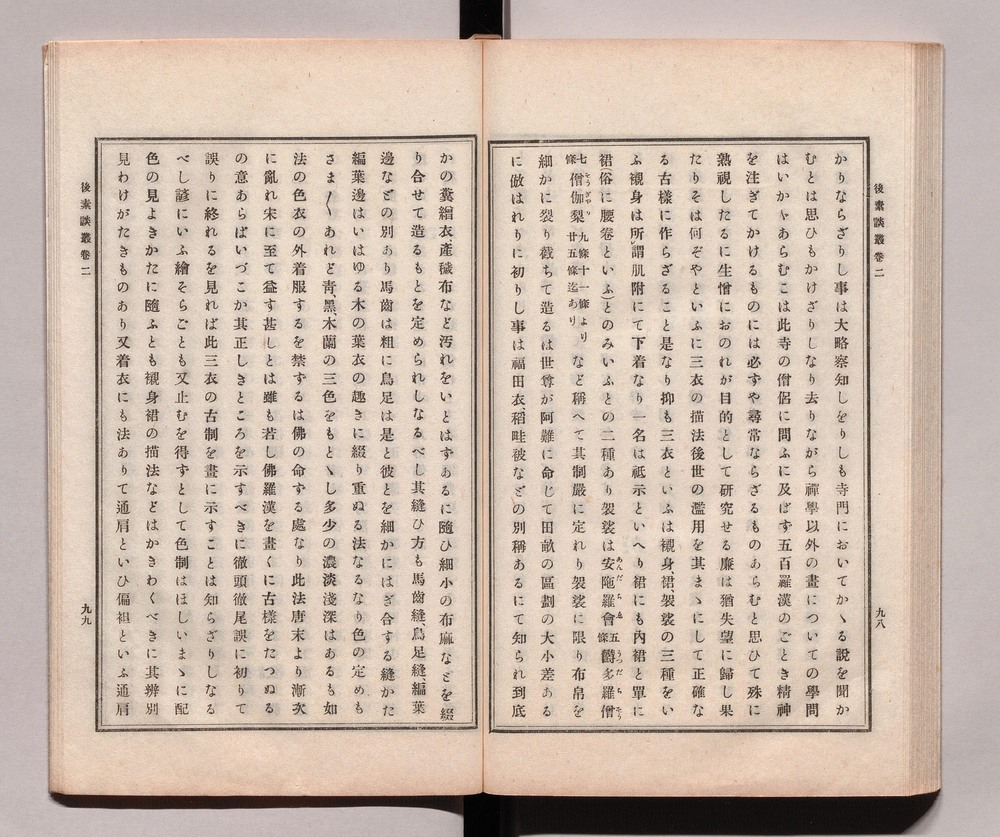 後素談叢卷二
九八
かりならざりし事は大略察知しをりしも寺門においてかゝる說を聞か
むとは思ひもかけざりしなり去りながら禪學以外の畫についての學問
はいかゞあらむこは此寺の僧侶に問ふに及ばず五百羅漢のごとき精神
を注ぎてかけるものには必ずや尋常ならざるものあらむと思ひて殊に
熟視したるに生憎におのれが目的として研究せる廉は猶失望に歸し果
たりそは何ぞやといふに三衣の描法後世の濫用を其まゝにして正確な
る古樣に作らざること是なり抑も三衣といふは襯身、裙、袈裟の三種をい
ふ襯身は所謂肌附にて下着なり一名は祗示といへり裙にも內裙と單に
裙俗に腰卷といふ)とのみいふとの二種あり袈裟は安陁羅會五條欝多羅僧
七條僧伽梨九條十一條より廿五條迄ありなど稱へて其制嚴に定れり袈裟に限り布帛を
細かに裂り截ちて造るは世尊が阿難に命じて田畝の區劃の大小差ある
に倣はれりに初りし事は福田衣、稻畦帔などの別稱あるにて知られ到底
後素談叢卷二
九九
かの糞繒衣、產穢布など汚れをいとはずあるに隨ひ細小の布麻などを綴
り合せて造るもとを定められしなるべし其縫ひ方も馬齒縫、鳥足縫、編葉
邊などの別あり馬齒は粗に鳥足は是と彼とを細かにはぎ合する縫かた
編葉邊はいはゆる木の葉衣の趣きに綴り重ぬる法なるなり色の定めも
さま〴〵あれど靑、黑、木蘭の三色をもとゝし多少の濃淡淺深はあるも如
法の色衣の外着服するを禁ずるは佛の命ずる處なり此法唐末より漸次
に亂れ宋に至て益す甚しとは雖も若し佛羅漢を畫くに古樣をたつぬる
の意あらばいづこか其正しきところを示すべきに徹頭徹尾誤に初りて
誤りに終れるを見れば此三衣の古制を畫に示すことは知らざりしなる
べし諺にいふ繪そらごとも又止むを得ずとして色制はほしいまゝに配
色の見よきかたに隨ふとも襯身裙の描法などはかきわくべきに其辨別
見わけがたきものあり又着衣にも法ありて通肩といひ偏袒といふ通肩